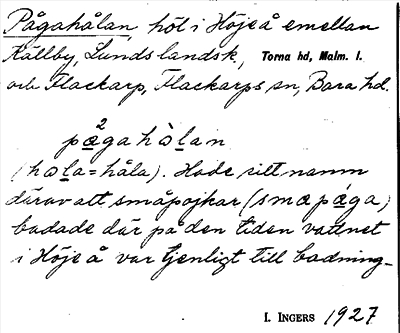 Pågahålan, höl i Höje å emellan
Källby, Lunds landsk, Torna hd, Malm. l.
och Flackarp, Flackarps sn, Bara hd.
på²gahòlan
(hola=håla). Hade sitt namn
därav att småpojkar (smapága)
badade där på den tiden vattnet
i Höje å var tjenligt till badning.
I. INGERS 1927